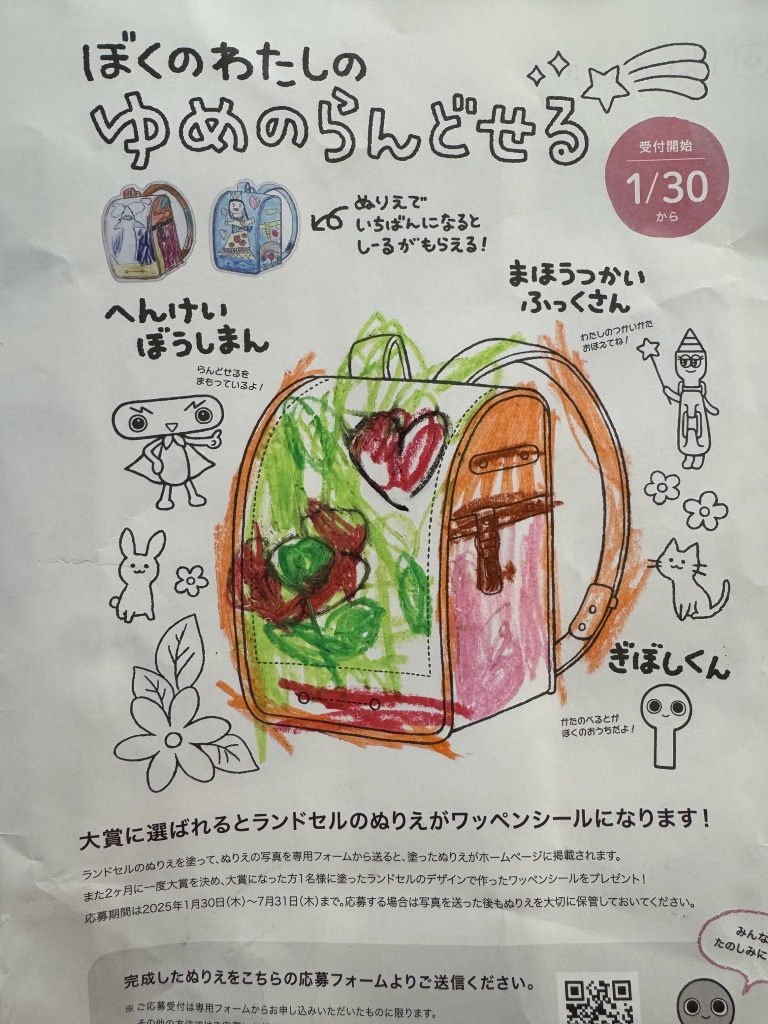 ぼくのわたしの
ゆめのらんどせる
受付開始
1/30
から
ぬりえで
いちばんになると
しーるがもらえる!
まほうつかい
ふっくさん
わたしのつかいかた
おぼえてね!
へんけい
ぼうしまん
らんどせるを
まもっているよ!
ぎぼしくん
かたのべるとが
ぼくのおうちだよ!
大賞に選ばれるとランドセルのぬりえがワッペンシールになります!
ランドセルのぬりえを塗って、ぬりえの写真を専用フォームから送ると、塗ったぬりえがホームページに掲載されます。
また2ヶ月に一度大賞を決め、大賞になった方1名様に塗ったランドセルのデザインで作ったワッペンシールをプレゼント!
応募期間は2025年1月30日(木)〜7月31日(木)まで。応募する場合は写真を送った後もぬりえを大切に保管しておいてください。
みんな
たのしみに
完成したぬりえをこちらの応募フォームよりご送信ください。
※ご応募受付は専用フォームからお申し込みいただいたものに限ります。